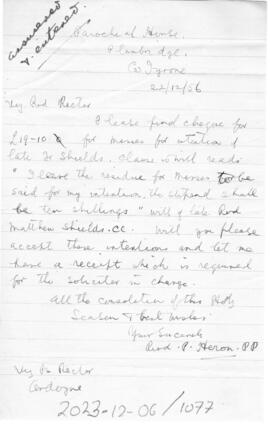 answered
& entered
Parochial House
Plumbridge
Co Tyrone
22/12/56
Very Revd Rector
Please find cheque for
£19-10 for masses for intention of
late Fr Shields. Clause in will reads
"I leave the residue for masses to be
said for my intention, the stipend shall
be ten shillings" will of late Revd
Matthew Shields. CC. Will you please
accept these intentions and let me
have a receipt which is required
for the solicitor in charge.
All the consolation of this Holy
Season & best wishes.
Your Sincerely
Revd. P. Heron. PP
Very Rev Rector
Ardoyne
2023-12-06/1077